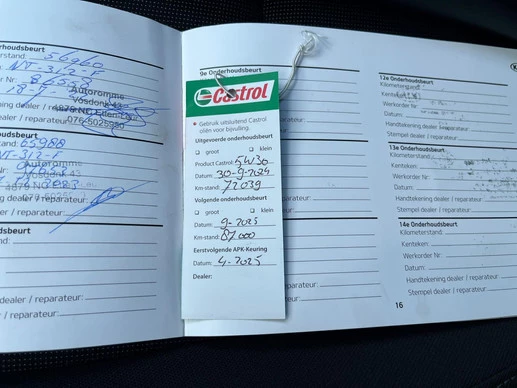 rhoudsbeurt
rstand: 56960
NT-312-F
Autoromme
Vosdonk 43
ning dealer / repara
el dealer / reparateur: 076-5025950
udsbeurt
and: 65988
NT-312-
Autoromme
Vosdonk 43
4879 NC
g dealer / reparateur:
dealer / reparateur:
dsbeurt
nd:
ealer / reparateur:
aler / reparateur:
9e Onderhoudsbeurt
Castrol
Gebruik uitsluitend Castrol
oliën voor bijvulling.
Uitgevoerde onderhoudsbeurt
groot klein
Product Castrol: 5W30
Datum: 30-9-2024
Km-stand: 72039
Volgende onderhoudsbeurt
groot klein
Datum: 9-2025
Km-stand: 87000
Eerstvolgende APK-Keuring
Datum: 4-2025
Dealer:
parateur:
ateur:
12e Onderhoudsbeurt
Kilometerstand:
Kenteken:
Werkorder Nr:
Datum:
Handtekening dealer / reparateur:
Stempel dealer / reparateur:
13e Onderhoudsbeurt
Kilometerstand:
Kenteken:
Werkorder Nr:
Datum:
Handtekening dealer / reparateur:
Stempel dealer / reparateur:
14e Onderhoudsbeurt
Kilometerstand:
Kenteken:
Werkorder Nr:
Datum:
Handtekening dealer / reparateur:
Stempel dealer / reparateur:
16